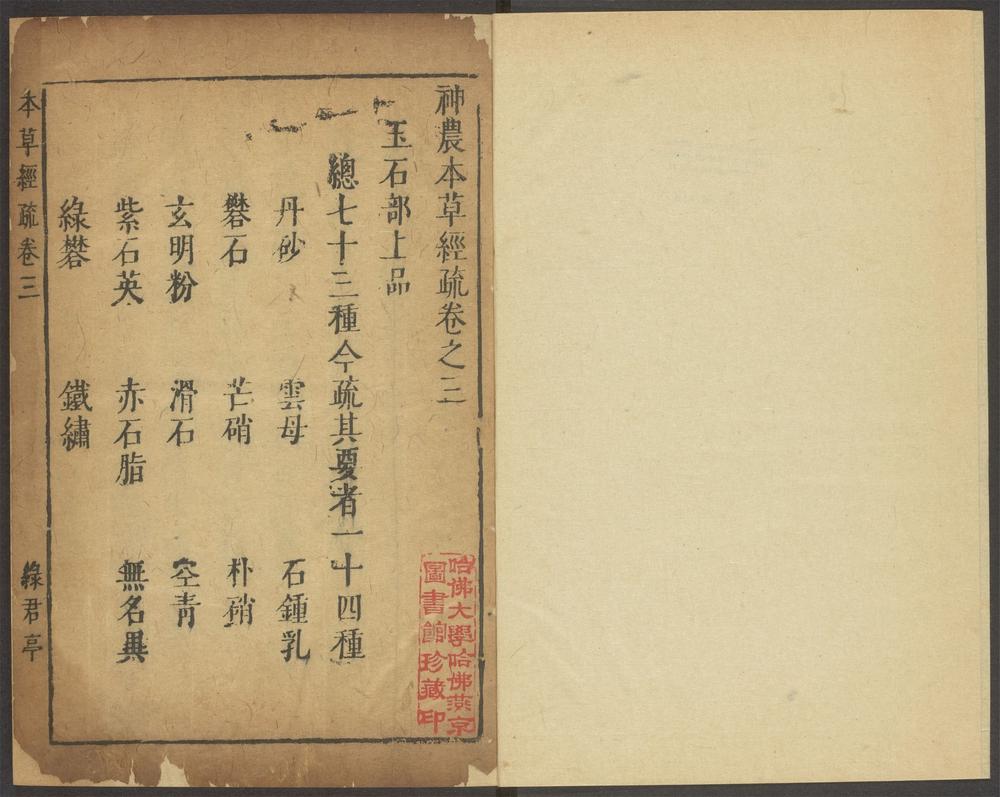 神農本草經疏卷之三
玉石部上品
總七十三種今疏其要者一十四種
丹砂 雲母 石鍾乳
礬石 芒硝 朴硝
玄明粉 滑石 空青
紫石英 赤石脂 無名異
綠礬 鐵繡
本草經疏卷三 綠君亭
哈佛大學哈佛燕京
圖書館珍藏印